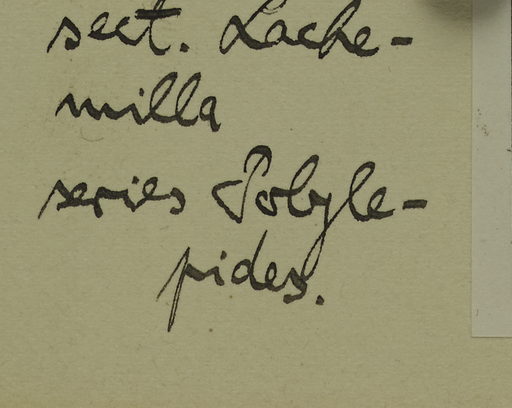 sect. Lache-
milla
series Polyle-
pides.